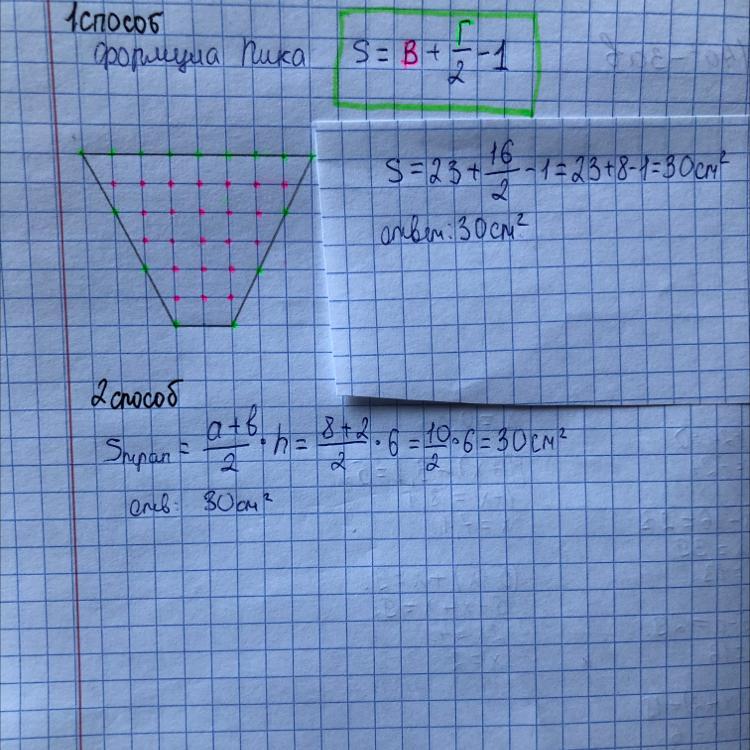 1способ
формула Пика S = В + Г/2 - 1
S = 23 + 16/2 - 1 = 23 + 8 - 1 = 30 см²
ответ: 30 см²
2способ
Sтрап = a + b/2 · h = 8 + 2/2 · 6 = 10/2 · 6 = 30 см²
отв: 30 см²